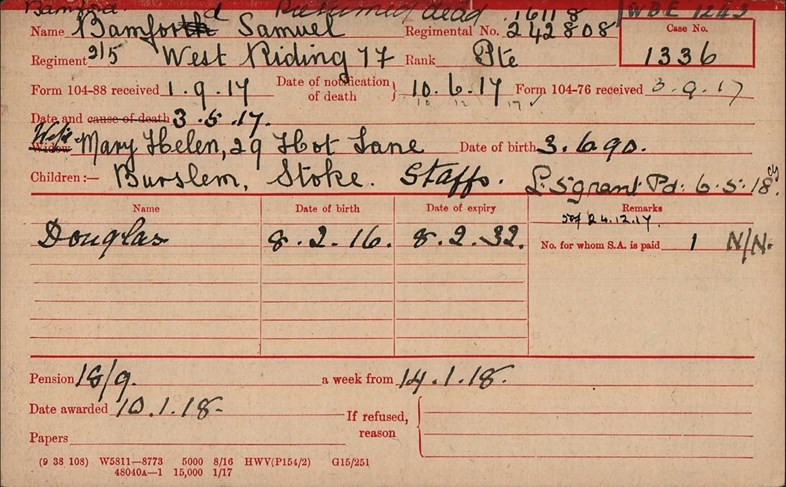 Bamford Presumed dead 16118 WBE 1243
Name Bamforth d Samuel Regimental No. 242808 Case No.
Regiment 2/5 West Riding 77 Rank Pte 1336
Form 104-88 received 1.9.17 Date of notification of death } 10.6.17 Form 104-76 received 3.9.17
10 12 17 ✓
Date and cause of death 3.5.17.
Wife Widow Mary Helen, 29 Hot Lane Date of birth 3.6.90.
Children:— Burslem, Stoke. Staffs. £5 grant Pd. 6.5.18.
Name Date of birth Date of expiry Remarks
24.12.17.
Douglas 8.2.16. 8.2.32. No. for whom S.A. is paid 1 N/N.
Pension 18/9. a week from 14.1.18.
Date awarded 10.1.18. If refused, reason {
Papers
(9 38 108) W5811—8773 5000 8/16 HWV(P154/2) G15/251
48040A—1 15,000 1/17